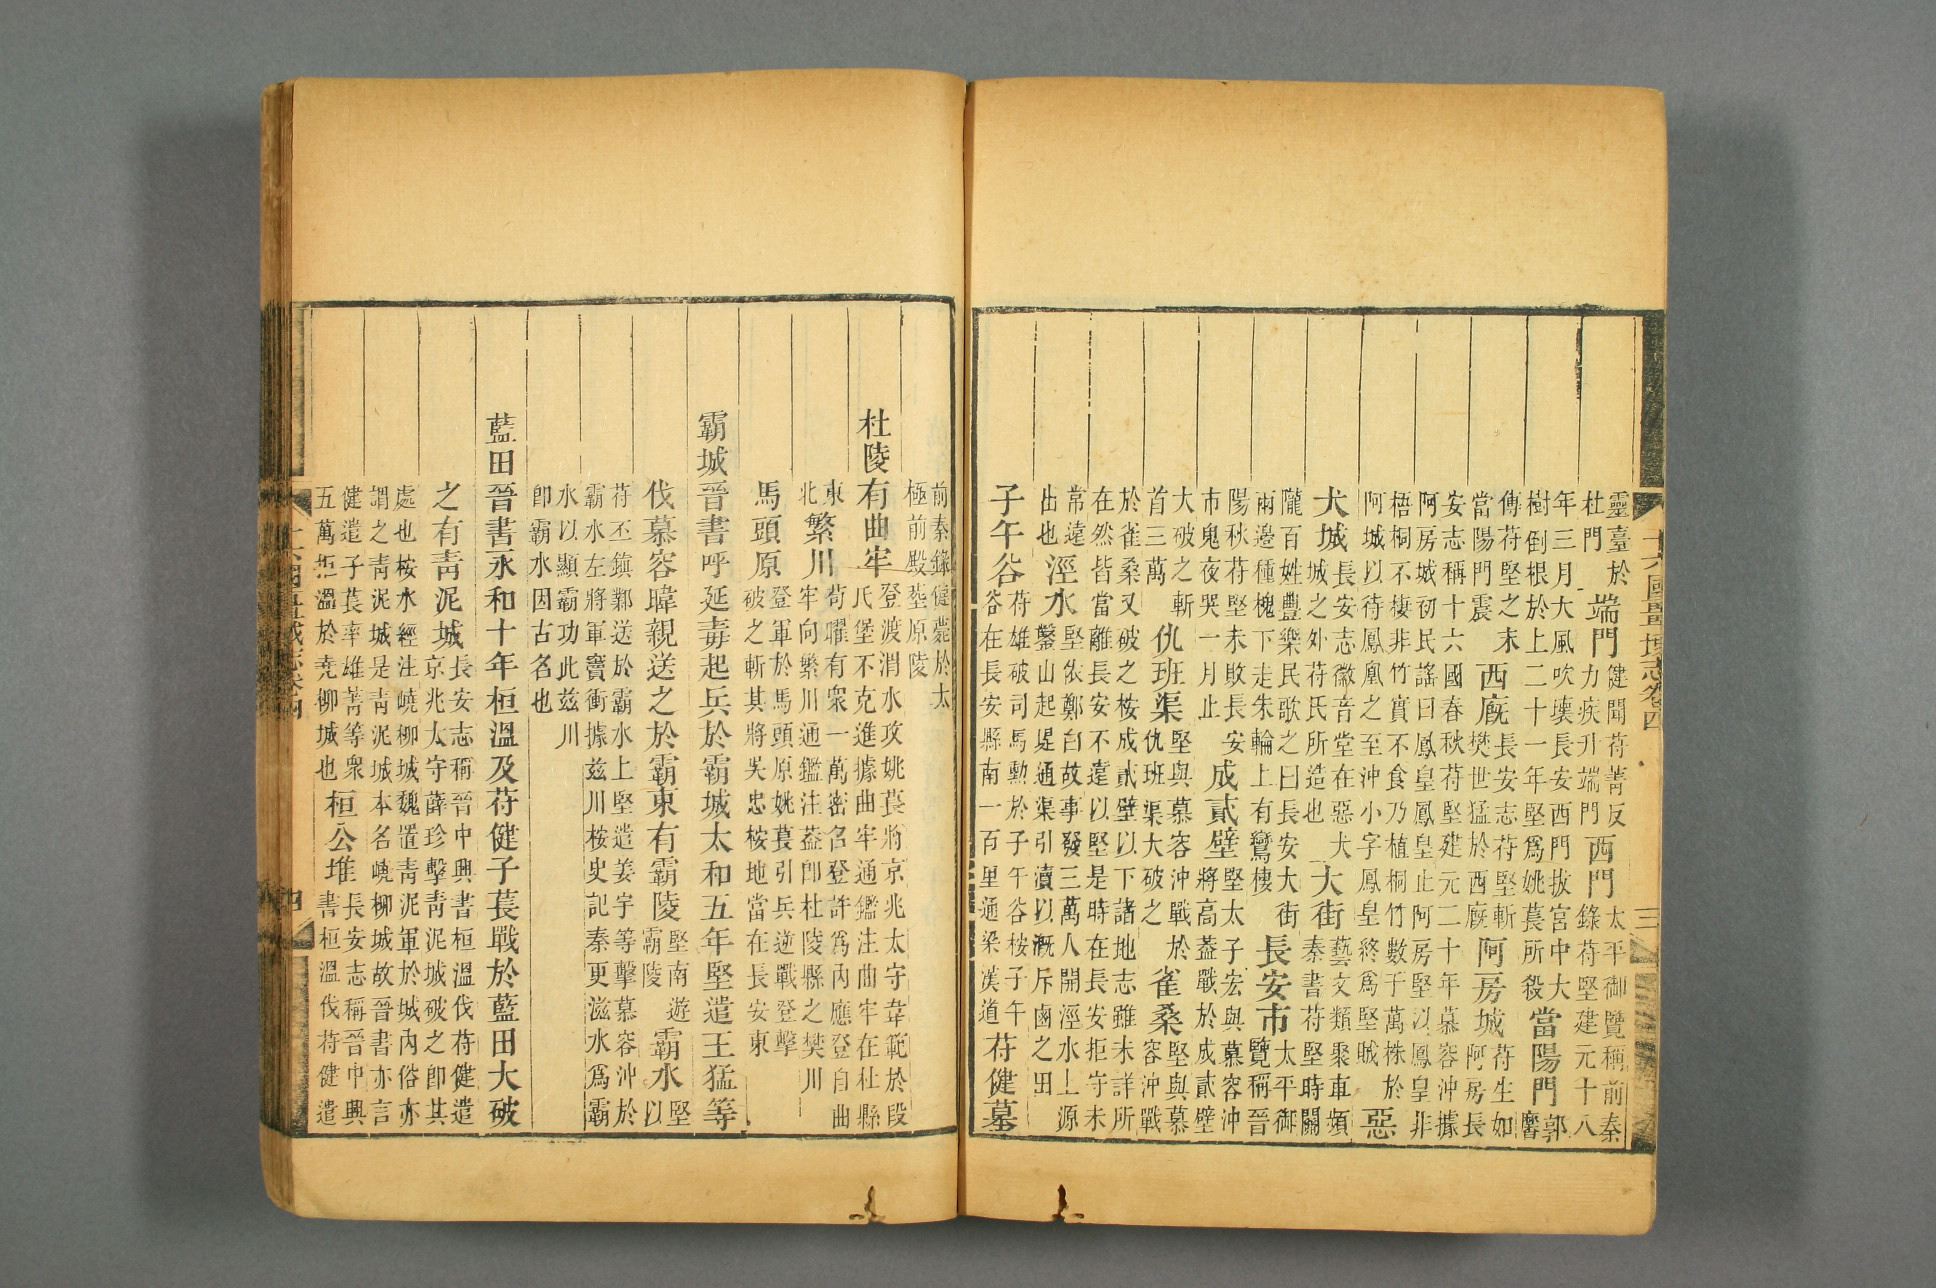 十六國疆域志卷四
三
靈臺於杜門
端門
健聞苻菁反力疾升端門
西門
太平御覽稱前秦錄苻堅建元十八
年三月大風吹壞長安西門拔宮中大
樹倒根於上二十一年堅爲姚萇所殺
當陽門
郭馨
傳苻堅之末當陽門震
西廐
長安志苻堅斬樊世猛於西廐
阿房城
苻生如阿房長
安志稱十六國春秋苻堅建元二十年慕容沖據
阿房城初民謠曰鳳皇鳳皇止阿房堅以鳳皇非
梧桐不棲非竹實不食乃植桐竹數千萬株於
阿城以待鳳凰之至沖小字鳳皇終爲堅賊
惡
犬城
長安志徽音堂在惡犬城之外苻氏所造也
大街
藝文類聚車頻秦書苻堅時關
隴百姓豐樂民歌之曰長安大街
兩邊種槐下走朱輪上有鸞棲
長安市
太平御覽稱晉
陽秋苻堅未敗長安
市鬼夜哭一月止
成貳壁
堅太子宏與慕容沖
將高蓋戰於成貳壁
大破之斬首三萬
仇班渠
堅與慕容沖戰於仇班渠大破之
雀桑
堅與慕容沖戰
於雀桑又破之桉成貳壁以下諸地志雖未詳所
在然皆當離長安不遠以堅是時在長安拒守未
常遠出也
涇水
堅依鄭白故事發三萬人開涇水上源
鑿山起堤通渠引瀆以溉斥鹵之田
子午谷
苻雄破司馬勳於子午谷桉子午
谷在長安縣南一百里通梁漢道
苻健墓
前秦錄健薨於太
極前殿塟原陵
杜陵有曲牢
登渡渭水攻姚萇將京兆太守韋範於段
氏堡不克進據曲牢通鑑注曲牢在杜縣
東北
繁川
苟曜有衆一萬密召登許爲內應登自曲
牢向繁川通鑑注葢卽杜陵縣之樊川
馬頭原
登軍於馬頭原姚萇引兵逆戰登擊
破之斬其將吳忠桉地當在長安東
霸城晉書呼延毒起兵於霸城太和五年堅遣王猛等
伐慕容暐親送之於霸東有霸陵
堅南遊霸陵
霸水
堅以
苻丕鎮鄴送於霸水上堅遣姜宇等擊慕容沖於
霸水左將軍竇衝據茲川桉史記秦更滋水爲霸
水以顯霸功此茲川
卽霸水因古名也
藍田晉書永和十年桓溫及苻健子萇戰於藍田大破
之有靑泥城
長安志稱晉中興書桓溫伐苻健遣
京兆太守薛珍擊靑泥城破之卽其
處也桉水經注嶢柳城魏置靑泥軍於城內俗亦
謂之靑泥城是靑泥城本名嶢柳城故晉書亦言
健遣子萇率雄菁等衆
五萬拒溫於堯柳城也
桓公堆
長安志稱晉中興
書桓溫伐苻健遣
十六國疆域志卷四
四